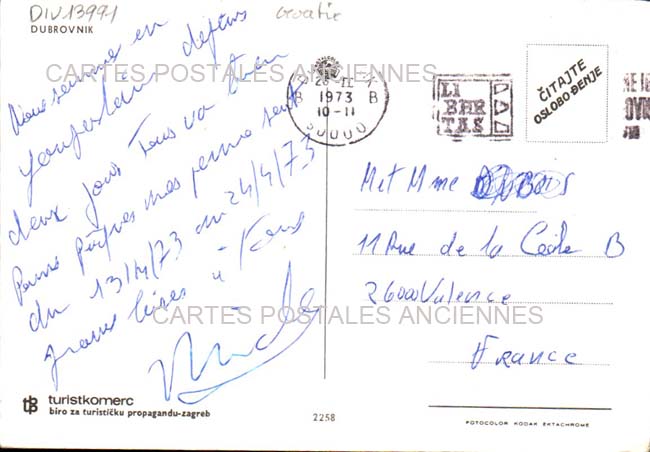 DIV13991
Croatie
DUBROVNIK
CARTES POSTALES ANCIENNES
1973
B B
10-11
LI
BER
TAS
ČITAJTE
OSLOBOĐENJE
Nous sommes en
Yougoslavie depuis
deux jours Tous va bien
Pour Pâques mes permes sont
du 13/4/73 au 24/4/73
gros bises à tous
M et Mme
11 Rue de la Cécile B
26000 Valence
France
CARTES POSTALES ANCIENNES
turistkomerc
biro za turističku propagandu-zagreb
2258
FOTOCOLOR KODAK EKTACHROME